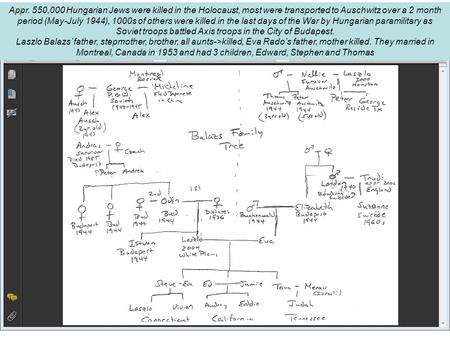 Appr. 550,000 Hungarian Jews were killed in the Holocaust, most were transported to Auschwitz over a 2 month
period (May-July 1944), 1000s of others were killed in the last days of the War by Hungarian paramilitary as
Soviet troops battled Axis troops in the City of Budapest.
Laszlo Balazs' father, stepmother, brother, all aunts->killed, Eva Rado's father, mother killed. They married in
Montreal, Canada in 1953 and had 3 children, Edward, Stephen and Thomas
Montreal
George - Micheline
Soviets
in China
Alex
Alex
Nellie - Laszlo
Survivor
Auschwitz
2000
Houston
Thomas
Auschwitz
1944
Peter
Auschwitz
1944
Peter
George
Reside Tx
Balazs Family
Tree
Andras -
Survivor
Died 1985
Budapest
Peter
Andrea
London
Trudi
England
Suzanne
suicide
1960s
2nd
Odon
1st
Budapest
1944
Bud
1944
Bud
1944
Bud
1944
Diabetes
1936
Buchenwald
1944
Elizabeth
Budapest
1944
Istvan
Budapest
1944
Laszlo
2004
White Plains
Eva
Steve - Eva
Ed - Jamie
Tom - Merav
(Israeli)
Laszlo
Vivian
Audrey
Eddie
Judah
Connecticut
California
Tennessee